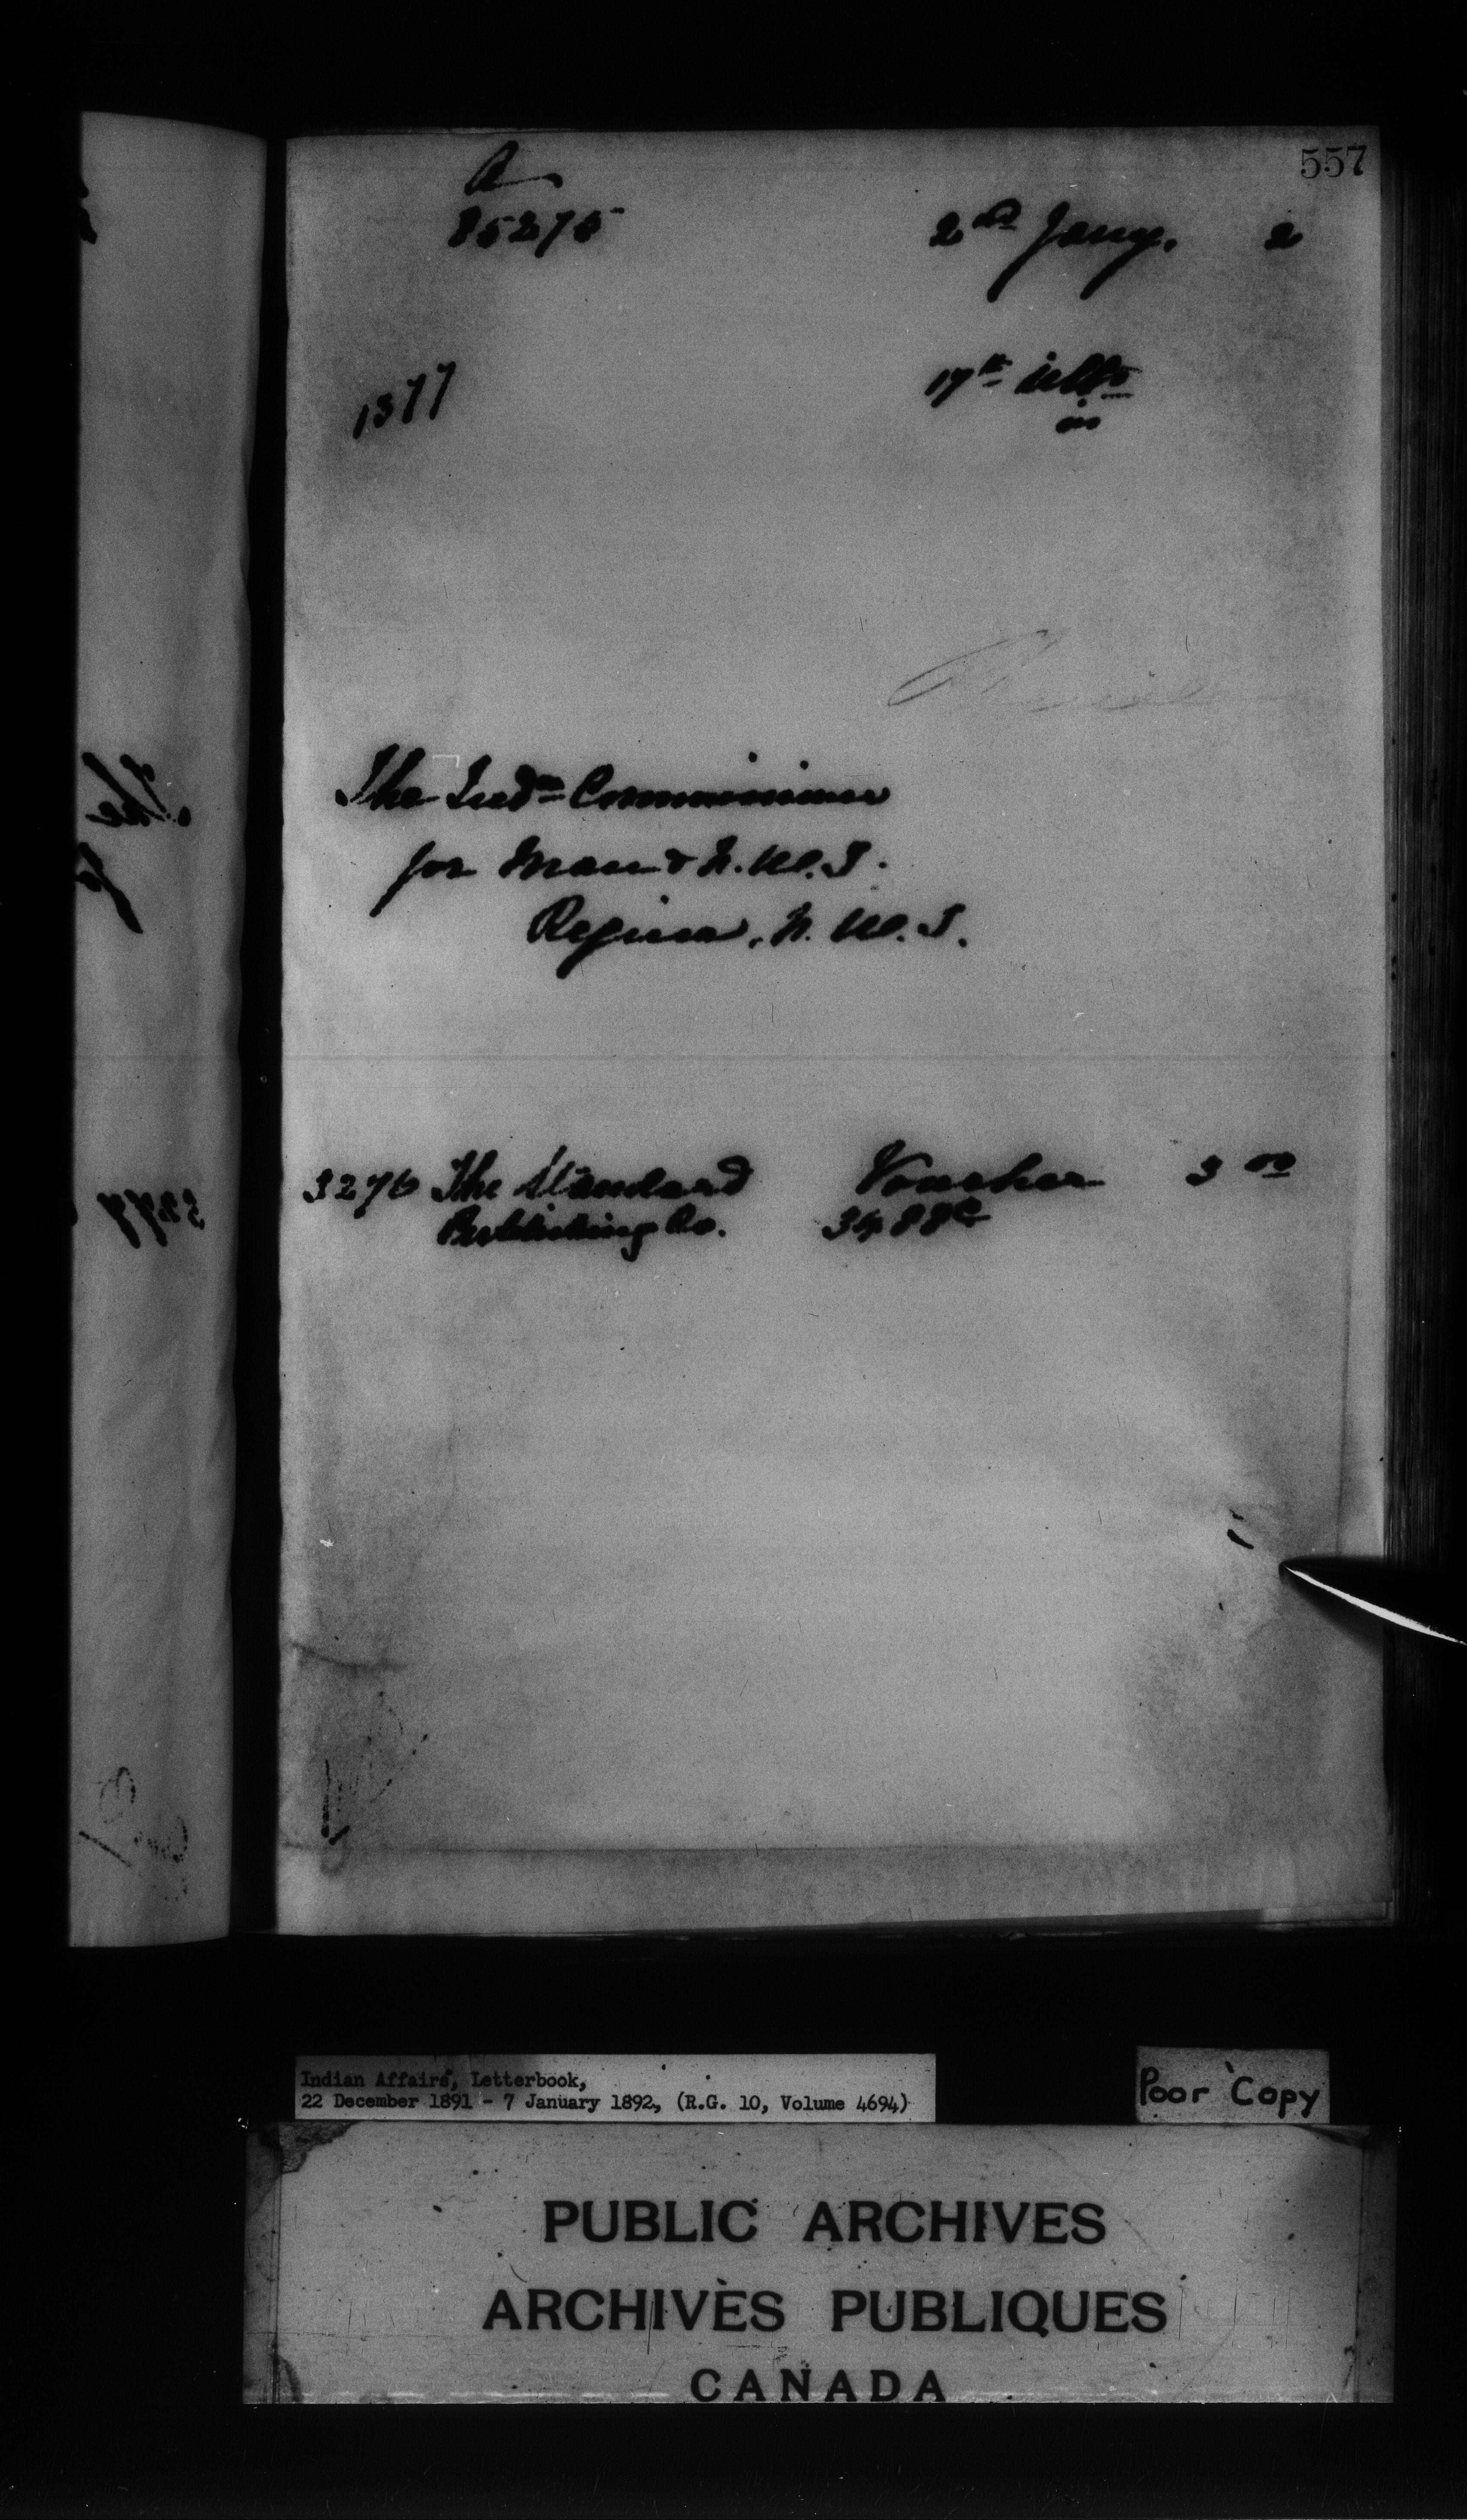 557
A
85275
2nd Jany. 2
1377
17th ulto
in
The Indn Commissioner
for Man & N.W.T.
Regina, N.W.T.
3276 The Standard Voucher 3 00
Publishing Co. 3488
Indian Affairs, Letterbook,
22 December 1891 - 7 January 1892, (R.G. 10, Volume 4694)
Poor Copy
PUBLIC ARCHIVES
ARCHIVES PUBLIQUES
CANADA